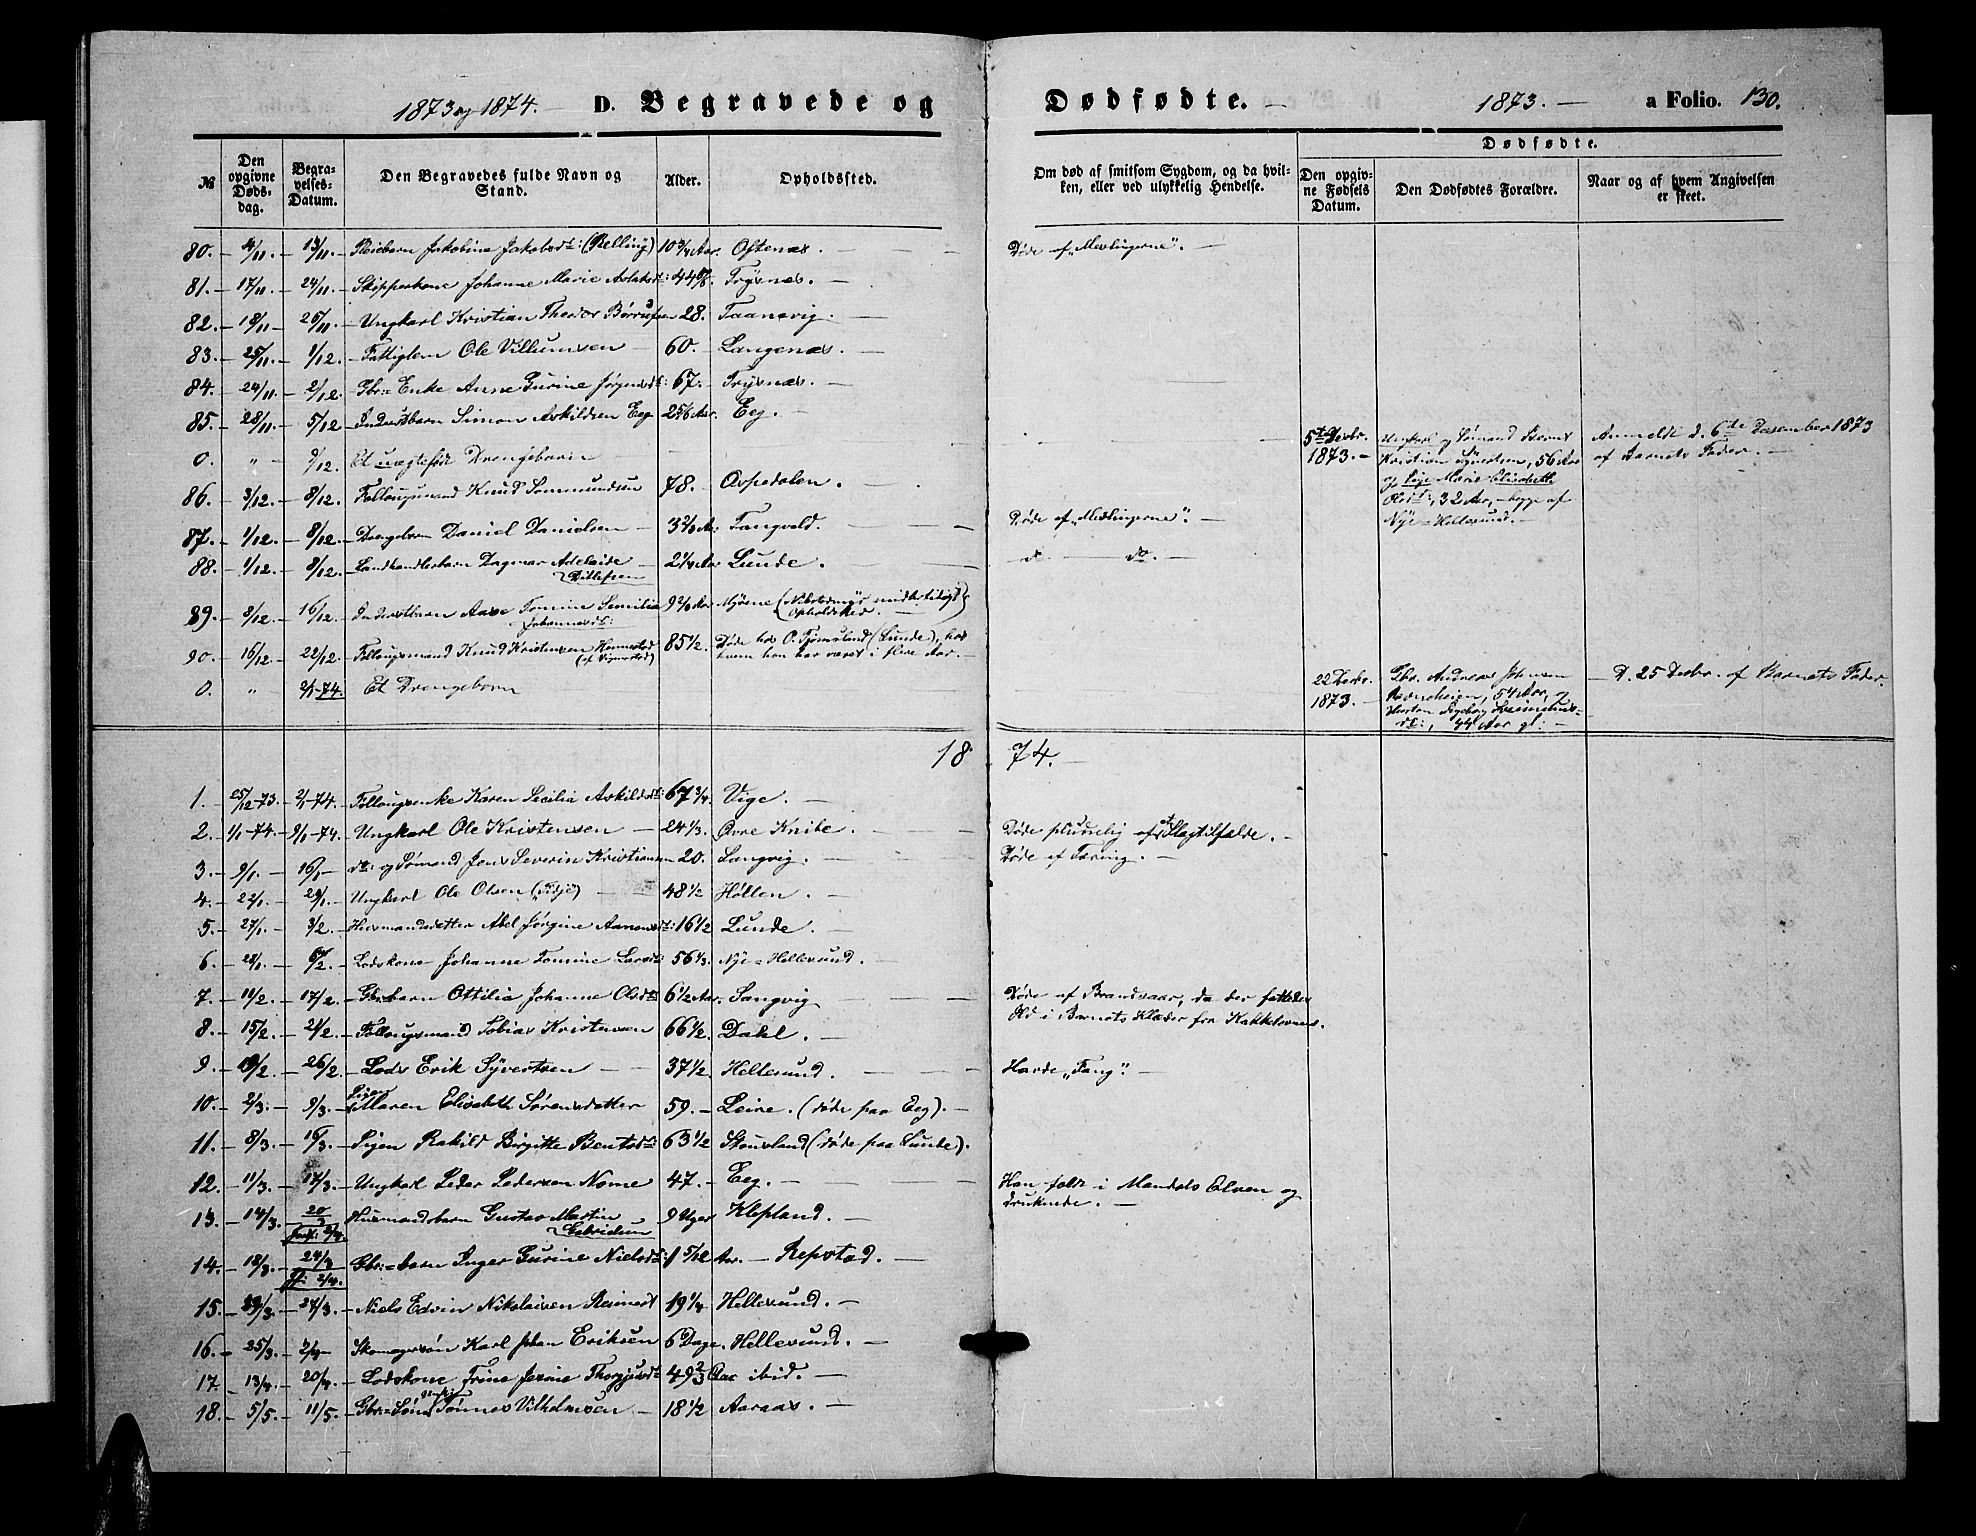 1873 og 1874. D. Begravede og Dødfødte. 1873. a Folio. 130.
№ Den opgivne Døds-dag. Begravelses-Datum. Den Begravedes fulde Navn og Stand. Alder. Opholdssted. Om død af smitsom Sygdom, og da hvilken, eller ved ulykkelig Hendelse. Dødfødte. Den opgivne Fødsels Datum. Den Dødfødtes Forældre. Naar og af hvem Angivelsen er skeet.
80. 4/11. 13/11. Pleiebarn Jakobine Jakobsdt: (Belling) 10 3/4 Aar. Oftenæs. Døde af "Meslingerne".
81. 17/11 24/11. Skipperkone Johanne Marie Aslaksdt: 44 Trysnæs.
82. 18/11 26/11. Ungkarl Kristian Theodor Børresen 28. Taanevig.
83. 25/11 1/12. Fattiglem Ole Villumsen 60. Langenæs.
84. 24/11 2/12. Gbr: Enke Anne Gurine Jørgensdt: 67. Trysnæs.
85. 28/11. 5/12 Inderstbarn Simon Askildsen Eeg 2 5/6 Aar. Eeg.
0. " 9/12. Et uægtefødt Drengebarn 5te Decbr. 1873. Ungkarl og Sømand Bernt Kristian Syvertsen, 56 Aar og Pige Marie Elisabeth Olsdt:, 32 Aar, begge af Nye-Hellesund. Anmeldt d. 6te Desember 1873 af Barnets Fader.
86. 3/12. 8/12. Follaugsmand Knud Sommundsen 78. Ospedalen.
87. 1/12. 8/12. Drengebarn Daniel Danielsen 3 Aar Fangvald. Døde af "Meslingerne".
88. 1/12. 8/12. Landhandlerbarn Dagmar Adelaide Ditlefsen 2 1/4 Aar Lunde. do do.
89. 8/12. 16/12. Inderstbarn Aase Tomine Semilia Johannesdt: 9 Aar Mjóene ( midlertidigt Opholdsted.)
90. 16/12. 22/12. Follaugsmand Knud Kristensen Hennestad (af Vigmostad) 85 1/2. Døde hos O. Tjomsland (Lunde), hos hvem han har været i flere Aar.
0. " 2/1-74. Et Drengebarn 22 Decbr. 1873. Gbr. Andreas Johnsen 54 Aar, og Hustru Ingeborg 44 Aar gl: D. 25 Decbr. af Barnets Fader.
1874.
1. 25/12-73. 2/1-74. Follaugsenke Karen Secilia Askildsdt: 67 3/4. Vige.
2. 1/1-74. 9/1-74. Ungkarl Ole Kristensen 24 1/3. Øvre Knibe. Døde pludselig af et Slagtilfælde.
3. 9/1. 16/1 do: og Sømand Jens Severin Kristiansen 20. Langvig. Døde af Tæring.
4. 22/1. 29/1. Ungkarl Ole Olsen 48 1/2 Høllen.
5. 27/1. 3/2. Husmandsdatter Abel Jørgine Aanonsdt: 16 1/2 Lunde.
6. 28/1. 6/2. Lodskone Johanne Tomine Larsdt: 56 1/3. Nye-Hellesund.
7. 11/2. 17/2. Gbr:barn Ottilia Johanne Olsdt: 6 1/2 Aar. Langvig Døde af Brandsaar, da der fattedes Ild i Barnets Klæder fra Kakkelovnen.
8. 15/2. 21/2. Follaugsmand Tobias Kristensen 66 1/2. Dahl.
9. 19/2. 26/2. Lods Erik Syvertsen 37 1/2. Hellesund. Havde "Tang".
10. 2/3. 9/3. Pigen Maren Elisabeth Sørensdatter 59. Leire. (døde paa Eeg).
11. 8/3. 16/3. Pigen Rakild Birgitte Bentsdt: 63 1/2 Stausland (døde paa Lunde).
12. 11/3. 17/3. Ungkarl Peder Pedersen Nome 47. Eeg. Han faldt i Mandals Elven og druknede.
13. 14/3. 20/3 2/4. Husmandsbarn Gustav Martin 9 Uger Klepland.
14. 18/3. 24/3 2/4. Gbr:barn Inger Gurine Nielsdt: 1 5/12 Aar. Repstad.
15. 23/3. 27/3. Niels Edvin Nikolaisen Reinert 19 1/4 Hellesund.
16. 25/3. 2/4 Skomagersøn Karl Johan Eriksen 6 Dage. Hellesund.
17. 13/4. 20/4. Lodskone Trine Jesine Thorgjusdt: 49 2/3 Aar ibid.
18. 5/5. 11/5. Gbr: Søn Ungkarl Tønnes Vilhelmsen 18 1/2 Aaraas.